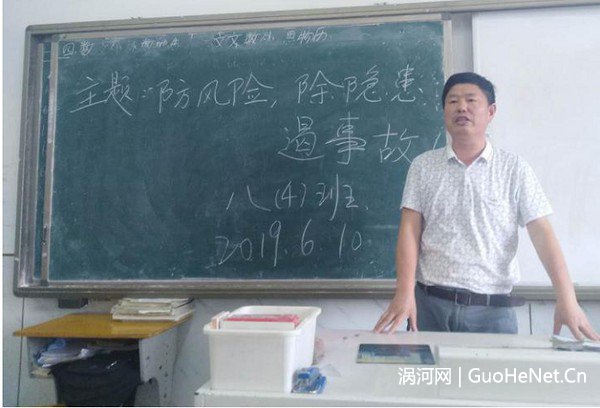 主题:防风险,除隐患
遏事故
八(4)班
2019.6.10
涡河网 | GuoHeNet.Cn